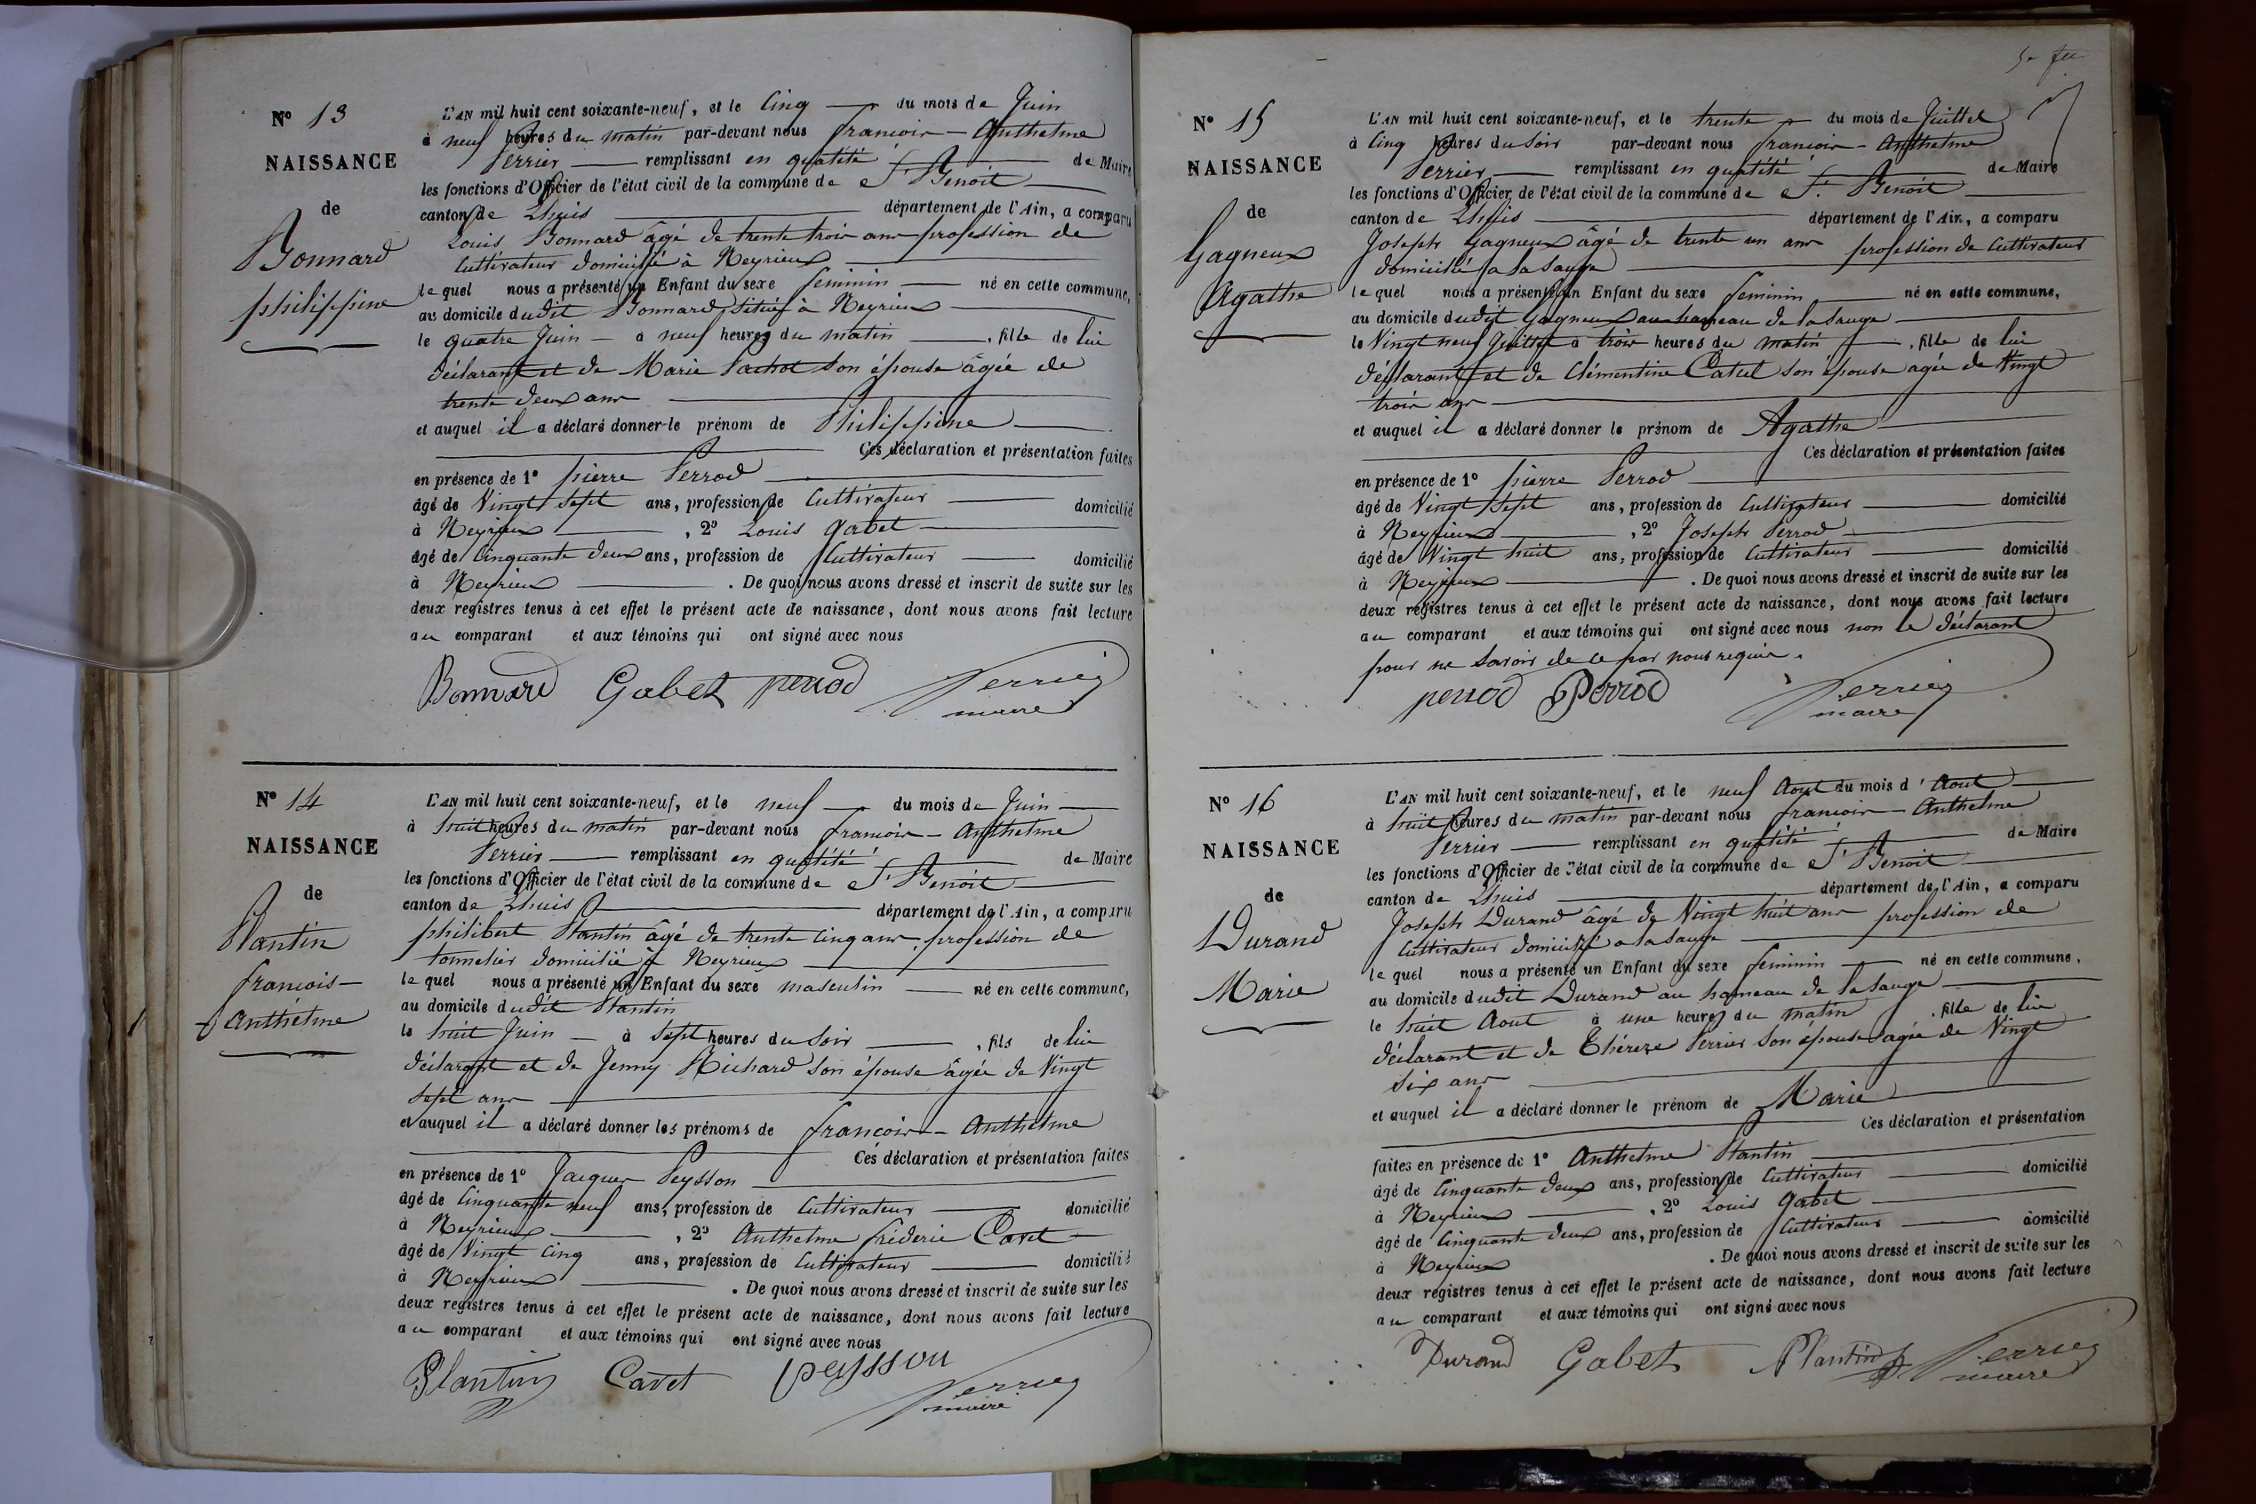 Nº 13
NAISSANCE
de
Bonnard
philippine
L'AN mil huit cent soixante-neuf, et le Cinq du mois de Juin
à neuf heures du matin par-devant nous francois - Anthelme
Perrier remplissant en qualité de Maire
les fonctions d'Officier de l'état civil de la commune de St Benoit
canton de Lhuis département de l'Ain, a comparu
Louis Bonnard âgé de trente trois ans profession de
Cultivateur domicilié à Neyrieux
lequel nous a présenté un Enfant du sexe feminin né en cette commune,
au domicile dudit Bonnard, situé à Neyrieux
le quatre Juin à neuf heures du matin , fille de lui
déclarant et de Marie Pachot son épouse âgée de
trente deux ans
et auquel il a déclaré donner le prénom de Philippine
Ces déclaration et présentation faites
en présence de 1º pierre Perrod
âgé de Vingt sept ans, profession de Cultivateur domicilié
à Neyrieux , 2º Louis Gabet
âgé de Cinquante deux ans, profession de Cultivateur domicilié
à Neyrieux . De quoi nous avons dressé et inscrit de suite sur les
deux registres tenus à cet effet le présent acte de naissance, dont nous avons fait lecture
au comparant et aux témoins qui ont signé avec nous
Bonnard Gabet perrod Perrier
maire
Nº 14
NAISSANCE
de
Plantin
francois -
Anthelme
L'AN mil huit cent soixante-neuf, et le neuf du mois de Juin
à huit heures du matin par-devant nous francois - Anthelme
Perrier remplissant en qualité de Maire
les fonctions d'Officier de l'état civil de la commune de St Benoit
canton de Lhuis département de l'Ain, a comparu
philibert Plantin âgé de trente cinq ans profession de
tonnelier domicilié à Neyrieux
lequel nous a présenté un Enfant du sexe masculin né en cette commune,
au domicile dudit Plantin
le huit Juin à sept heures du soir , fils de lui
déclarant et de Jenny Richard son épouse âgée de Vingt
sept ans
et auquel il a déclaré donner les prénoms de francois - Anthelme
Ces déclaration et présentation faites
en présence de 1º Jacques Peysson
âgé de Cinquante neuf ans, profession de Cultivateur domicilié
à Neyrieux , 2º Anthelme fréderic Cavet
âgé de Vingt cinq ans, profession de Cultivateur domicilié
à Neyrieux . De quoi nous avons dressé et inscrit de suite sur les
deux registres tenus à cet effet le présent acte de naissance, dont nous avons fait lecture
au comparant et aux témoins qui ont signé avec nous
Plantin Cavet peysson
Perrier
maire
Nº 15
NAISSANCE
de
Gagneux
Agathe
L'AN mil huit cent soixante-neuf, et le trente du mois de Juillet
à Cinq heures du soir par-devant nous francois - Anthelme
Perrier remplissant en qualité de Maire
les fonctions d'Officier de l'état civil de la commune de St Benoit
canton de Lhuis département de l'Ain, a comparu
Joseph Gagneux âgé de trente un ans profession de Cultivateur
domicilié a la Sauge
lequel nous a présenté un Enfant du sexe feminin né en cette commune,
au domicile dudit Gagneux au hameau de la Sauge
le Vingt neuf Juillet à trois heures du matin , fille de lui
déclarant et de Clémentine Catel son épouse agée de Vingt
trois ans
et auquel il a déclaré donner le prénom de Agathe
Ces déclaration et présentation faites
en présence de 1º pierre Perrod
âgé de Vingt sept ans, profession de Cultivateur domicilié
à Neyrieux , 2º Joseph Perrod
âgé de Vingt huit ans, profession de Cultivateur domicilié
à Neyrieux . De quoi nous avons dressé et inscrit de suite sur les
deux registres tenus à cet effet le présent acte de naissance, dont nous avons fait lecture
au comparant et aux témoins qui ont signé avec nous non le déclarant
pour ne savoir de ce par nous requis.
perrod Perrod Perrier
maire
Nº 16
NAISSANCE
de
Durand
Marie
L'AN mil huit cent soixante-neuf, et le neuf Aout du mois d'Aout
à huit heures du matin par-devant nous francois - Anthelme
Perrier remplissant en qualité de Maire
les fonctions d'Officier de l'état civil de la commune de St Benoit
canton de Lhuis département de l'Ain, a comparu
Joseph Durand âgé de Vingt huit ans profession de
Cultivateur domicilié a la Sauge
lequel nous a présenté un Enfant du sexe feminin né en cette commune,
au domicile dudit Durand au hameau de la Sauge
le huit Aout à une heures du matin , fille de lui
déclarant et de Thérèze Perrier son épouse agée de Vingt
six ans
et auquel il a déclaré donner le prénom de Marie
Ces déclaration et présentation
faites en présence de 1º Anthelme Plantin
âgé de Cinquante deux ans, profession de Cultivateur domicilié
à Neyrieux , 2º Louis Gabet
âgé de Cinquante deux ans, profession de Cultivateur domicilié
à Neyrieux . De quoi nous avons dressé et inscrit de suite sur les
deux registres tenus à cet effet le présent acte de naissance, dont nous avons fait lecture
au comparant et aux témoins qui ont signé avec nous
Durand Gabet Plantin Perrier
maire